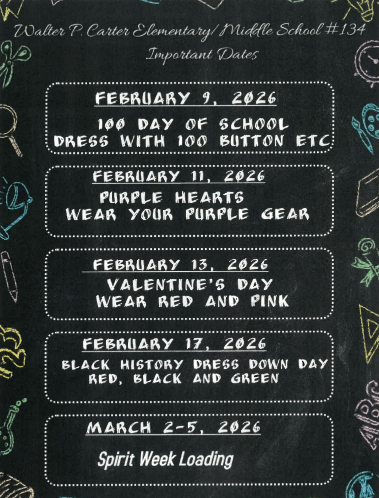 Walter P. Carter Elementary/Middle School #134
Important Dates
FEBRUARY 9, 2026
100 DAY OF SCHOOL
DRESS WITH 100 BUTTON ETC
FEBRUARY 11, 2026
PURPLE HEARTS
WEAR YOUR PURPLE GEAR
FEBRUARY 13, 2026
VALENTINE'S DAY
WEAR RED AND PINK
FEBRUARY 17, 2026
BLACK HISTORY DRESS DOWN DAY
RED, BLACK AND GREEN
MARCH 2-5, 2026
Spirit Week Loading
123
ABC